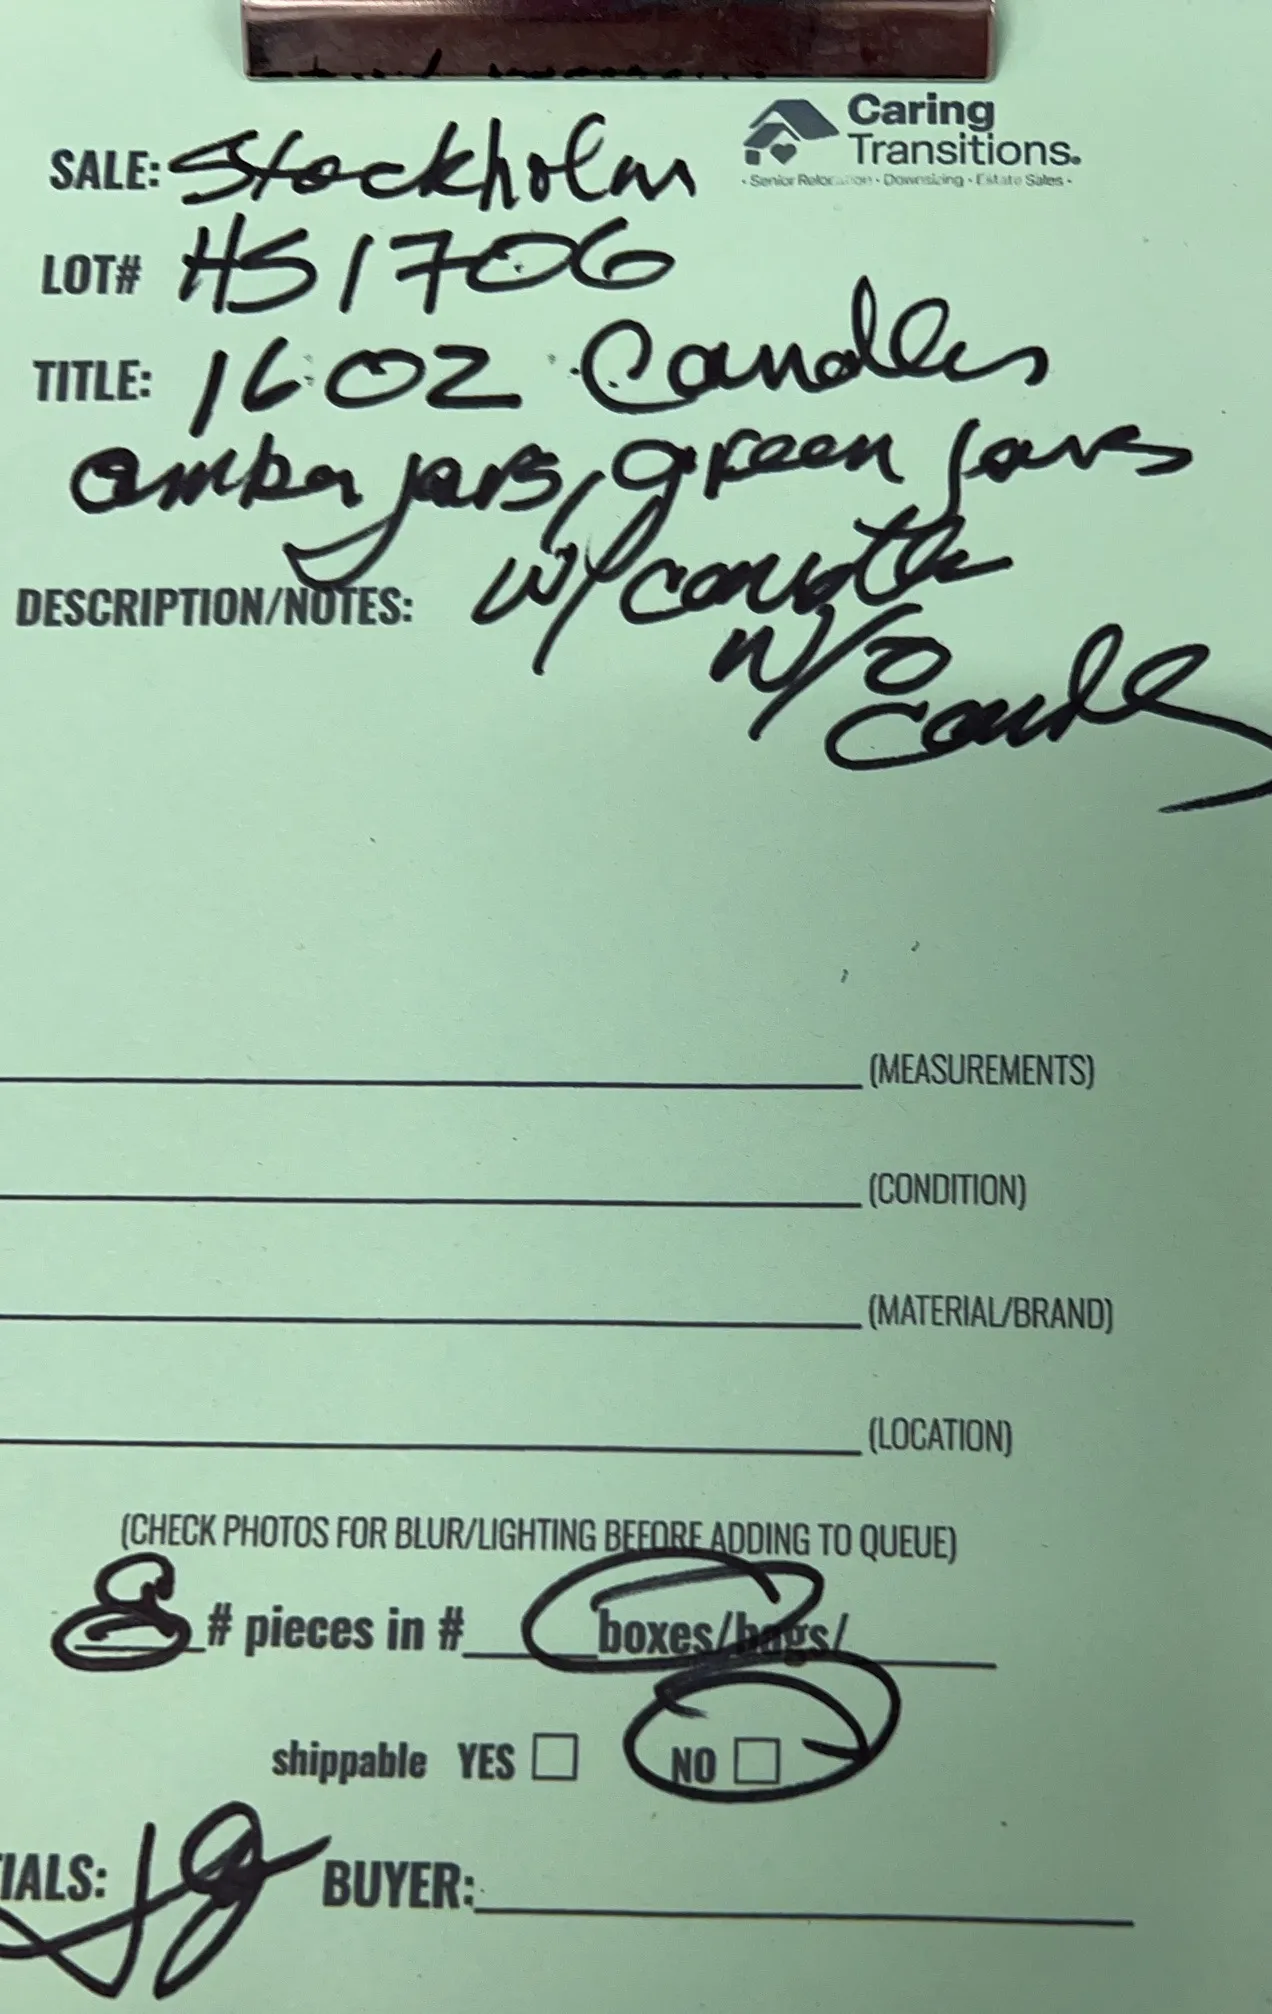 Caring
Transitions.
• Senior Relocation • Downsizing • Estate Sales •
SALE: Stockholm
LOT# HS1706
TITLE: 16 OZ Candles
amber jars, green jars
DESCRIPTION/NOTES: w/candle
w/o
candle
(MEASUREMENTS)
(CONDITION)
(MATERIAL/BRAND)
(LOCATION)
(CHECK PHOTOS FOR BLUR/LIGHTING BEFORE ADDING TO QUEUE)
# pieces in #____boxes/bags/
shippable YES ☐ NO ☐
IALS: BUYER: